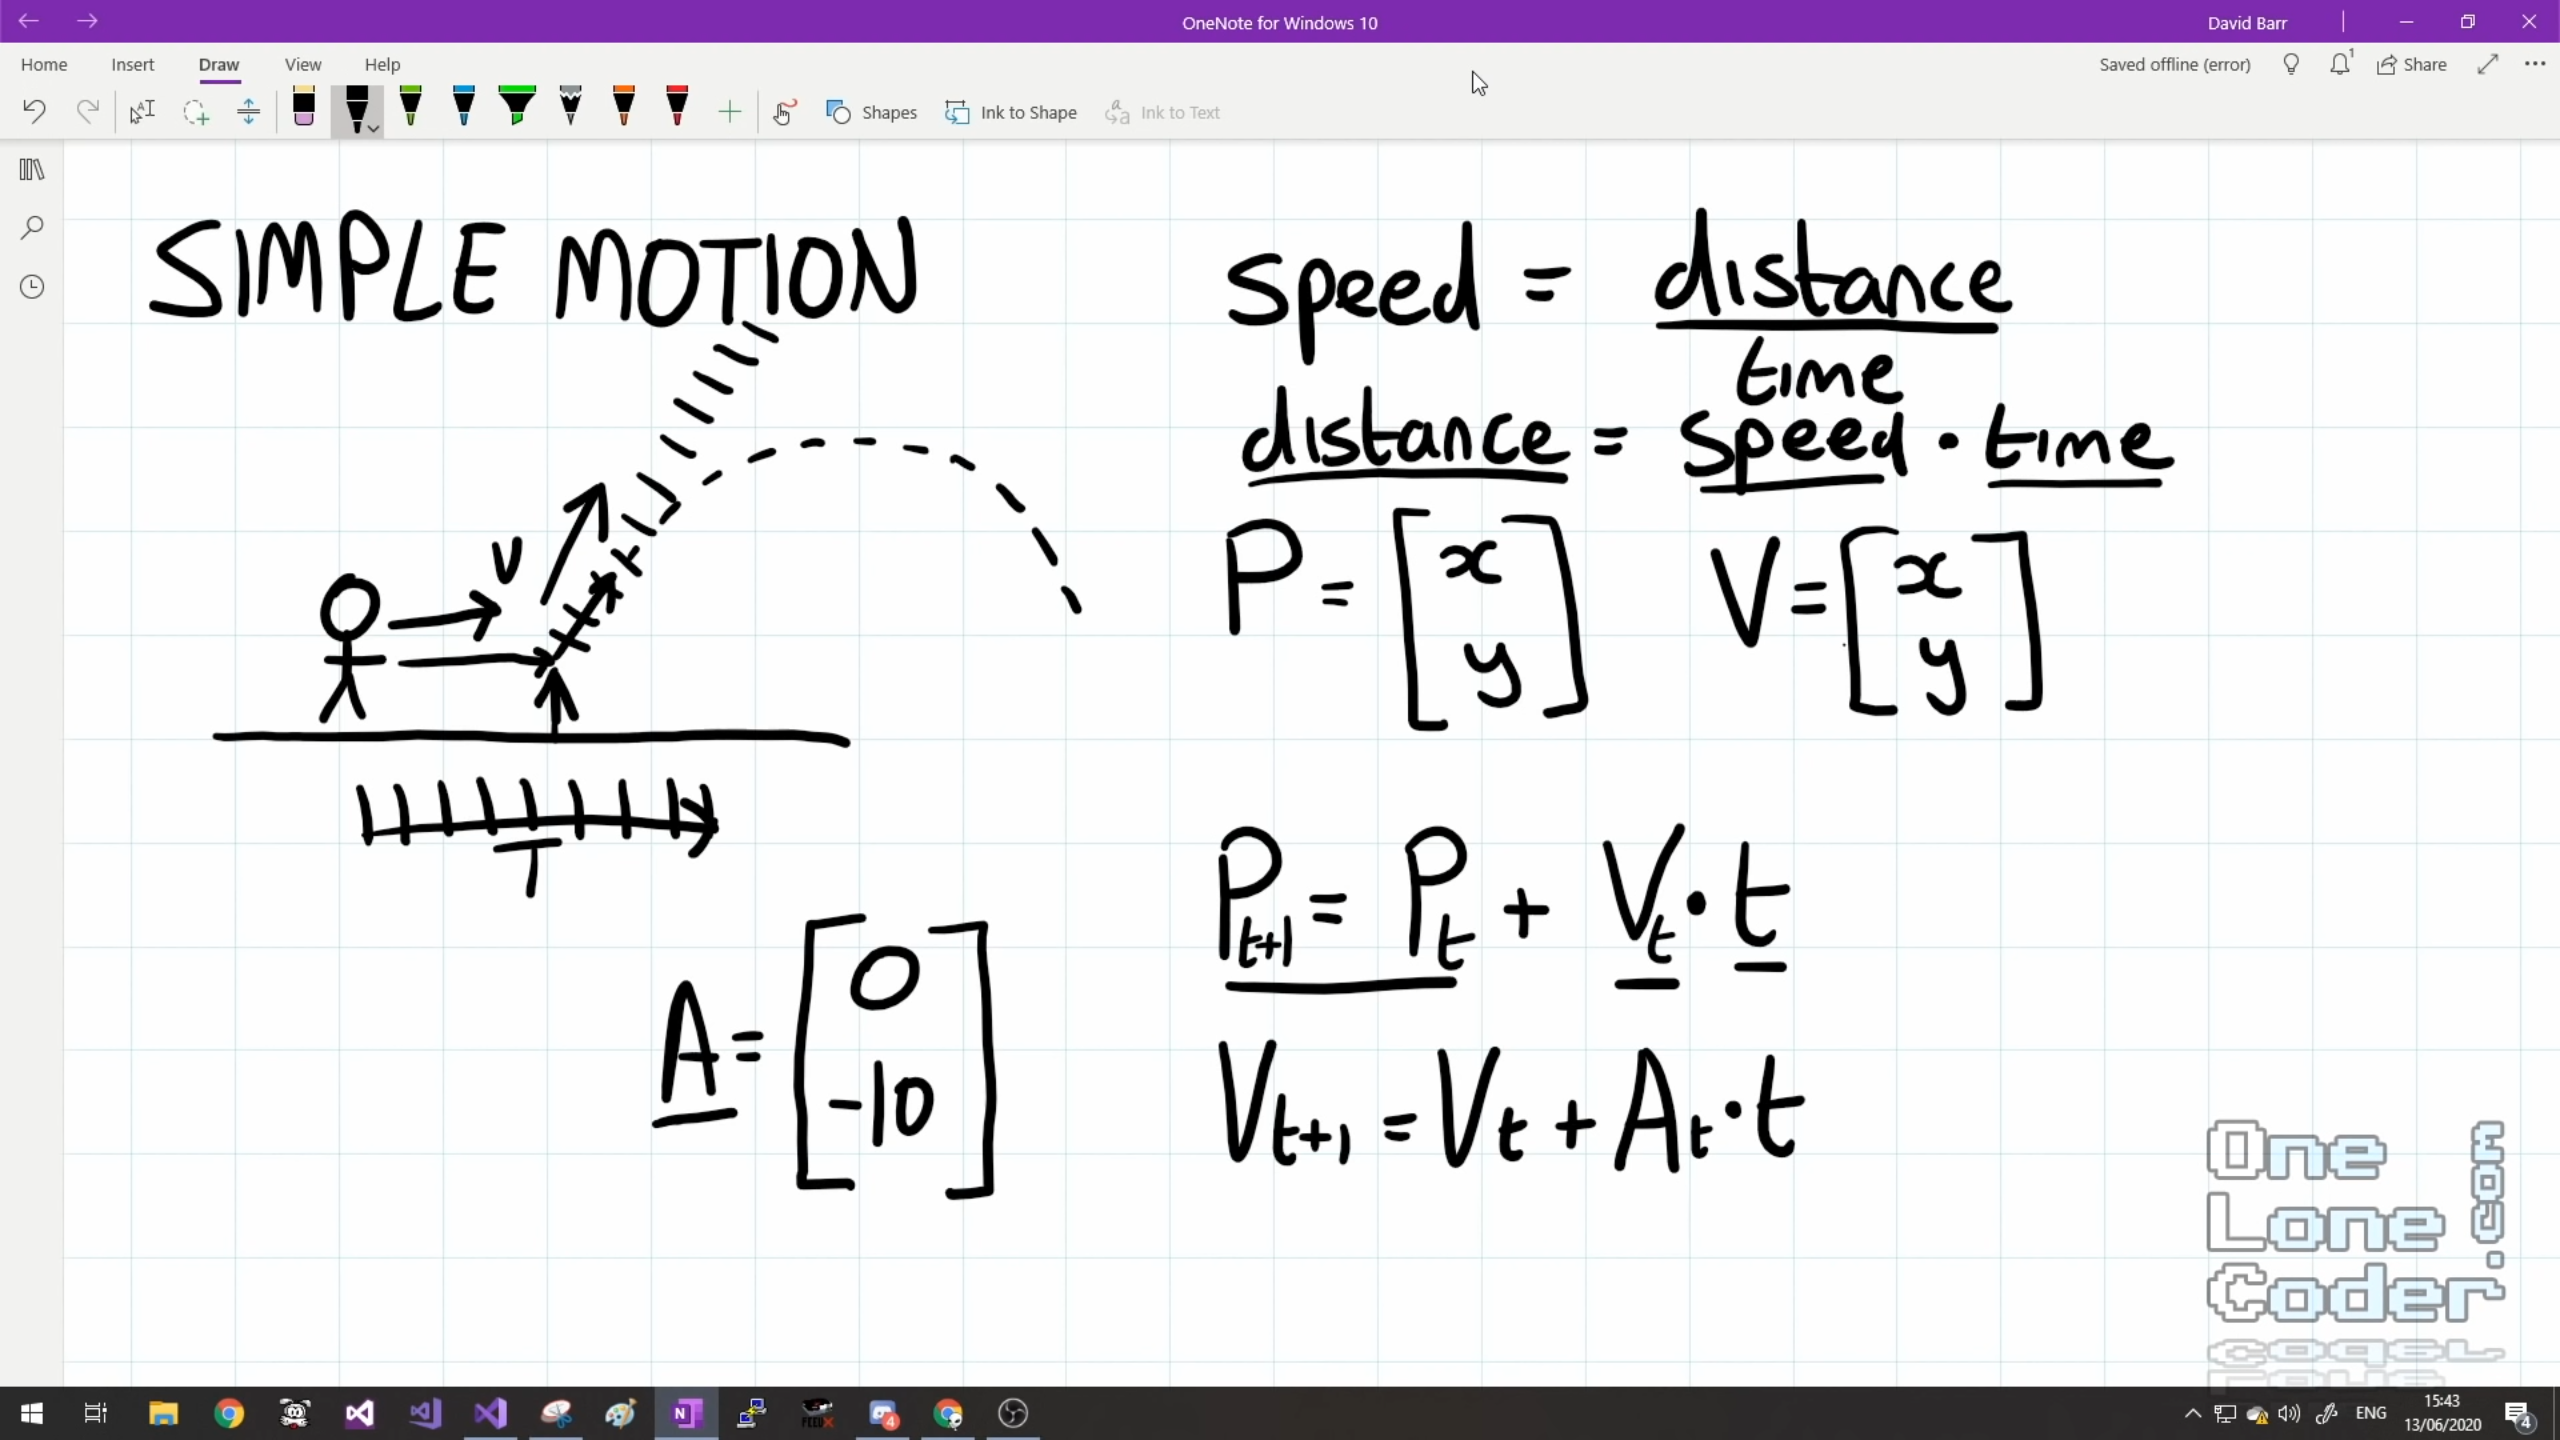 OneNote for Windows 10
David Barr
Home Insert Draw View Help
Saved offline (error)
1
Share
Shapes
Ink to Shape
Ink to Text
SIMPLE MOTION
V
T
A = [ 0
-10 ]
speed = distance
time
distance = speed · time
P = [ x
y ]
V = [ x
y ]
Pt+1 = Pt + Vt · t
Vt+1 = Vt + At · t
One
Lone
Coder
.com
4
ENG
15:43
13/06/2020
4